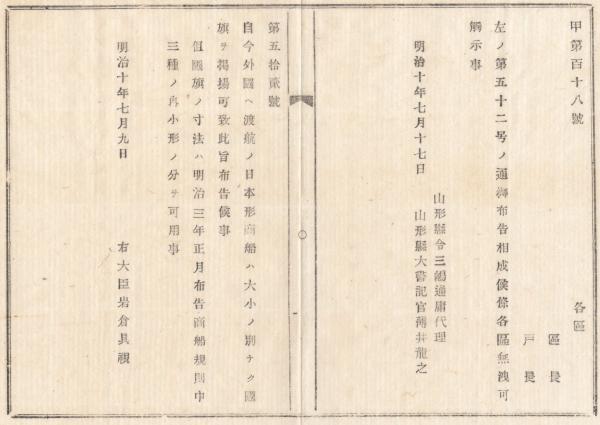 甲第百十八號
各區
區長
戸長
左ノ第五十二号ノ通御布告相成候條各區無洩可
觸示事
明治十年七月十七日
山形縣令三島通庸代理
山形縣大書記官薄井龍之
第五拾貳號
自今外國ヘ渡航ノ日本形商船ハ大小ノ別ナク國
旗ヲ掲揚可致此旨布告候事
但國旗ノ寸法ハ明治三年正月布告商船規則中
三種ノ內小形ノ分ヲ可用事
明治十年七月九日
右大臣岩倉具視